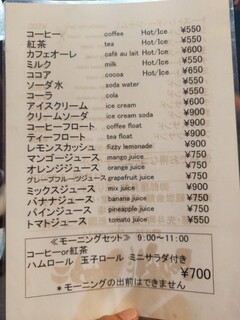 コーヒー coffee Hot/Ice ¥550
紅茶 tea Hot/Ice ¥550
カフェオーレ café au lait Hot/Ice ¥600
ミルク milk Hot/Ice ¥550
ココア cocoa Hot/Ice ¥650
ソーダ水 soda water ¥550
コーラ cola ¥550
アイスクリーム ice cream ¥600
クリームソーダ ice cream soda ¥900
コーヒーフロート coffee float ¥900
ティーフロート tea float ¥900
レモンスカッシュ fizzy lemonade ¥900
マンゴージュース mango juice ¥750
オレンジジュース orange juice ¥750
グレープフルーツジュース grapefruit juice ¥750
ミックスジュース mix juice ¥900
バナナジュース banana juice ¥750
パインジュース pineapple juice ¥750
トマトジュース tomato juice ¥550
≪モーニングセット≫ 9:00~11:00
コーヒーor紅茶
ハムロール 玉子ロール ミニサラダ付き
¥700
*モーニングの出前はできません